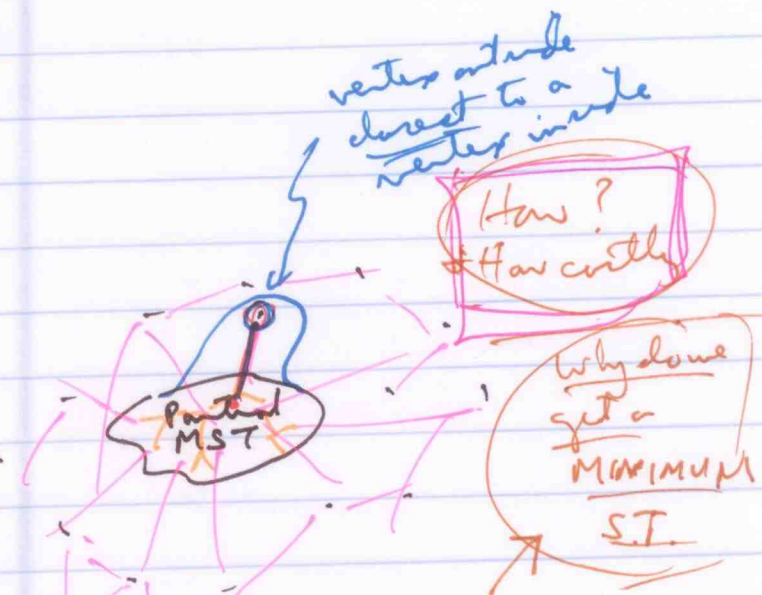 vertex outside
closest to a
vertex inside
How?
+ How costly
Partial
MST
Why do we
get a
MINIMUM
S.T.